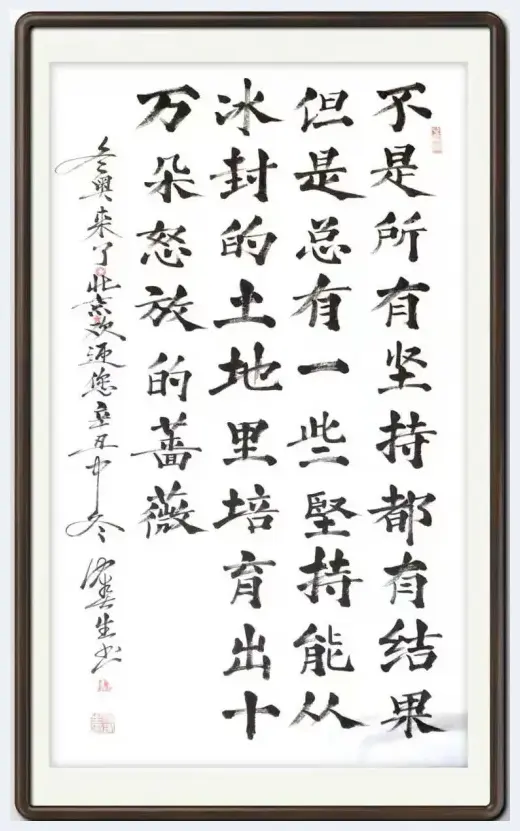 不是所有坚持都有结果
但是总有一些堅持能从
冰封的土地里培育出十
万朵怒放的蔷薇
冬奥来了北京欢迎您辛丑中冬 生书